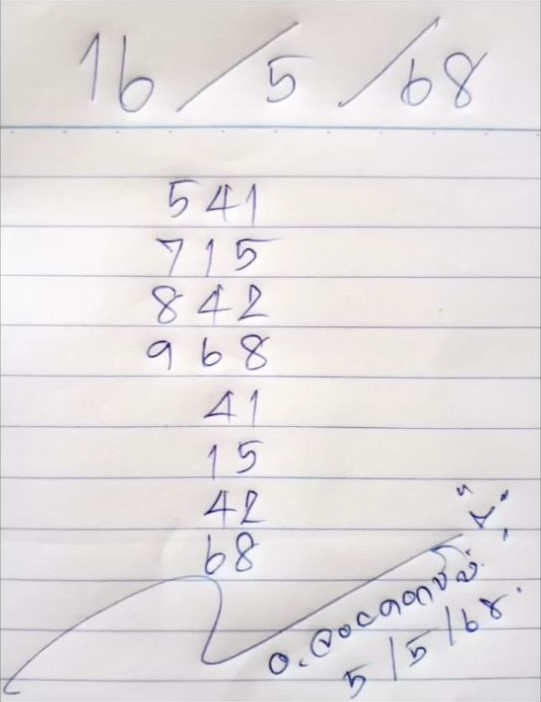 16/5/68
541
715
842
968
41
15
42
68
5/5/68.